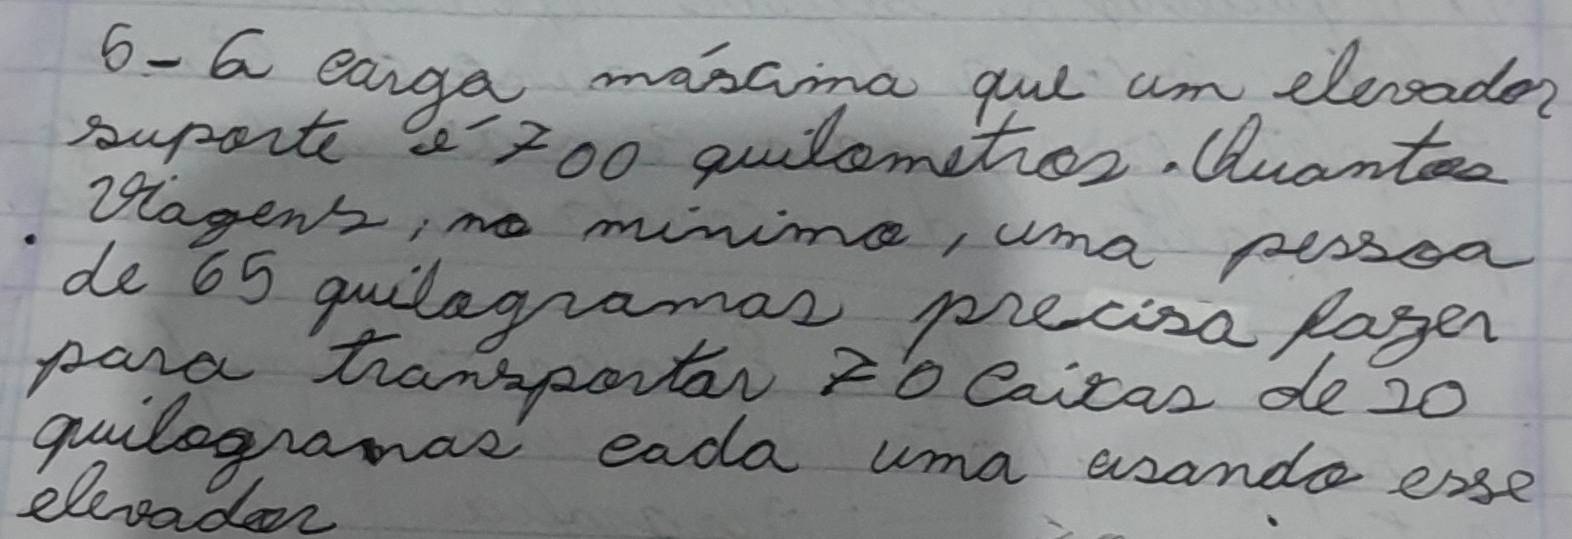 6- A carga máxima que um elevador
suporte é 700 quilometros. Quantas
viagens, no mínimo, uma pessoa
de 65 quilogramas precisa fazer
para transportar 70 caixas de 20
quilogramas cada uma usando esse
elevador